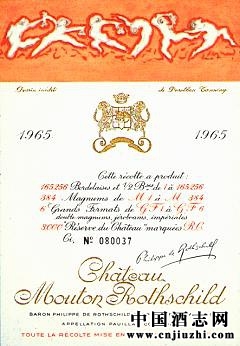 Dessin inédit de Dorothea Tanning
1965 1965
Cette récolte a produit:
165256 Bordelaises et ½ Bses de 1 à 165256
384 Magnums de M 1 à M 384
6 Grands Formats de G F 1 à G F 6
double magnums, jéroboams, impériales
3000 "Réserve du Château" marquées R.C.
Ci, Nº 080037
Philippe de Rothschild
Château
Mouton Rothschild
BARON PHILIPPE DE ROTHSCHILD
APPELLATION PAUILLAC
TOUTE LA RÉCOLTE MISE EN
中国酒志网
www.cnjiuzhi.com